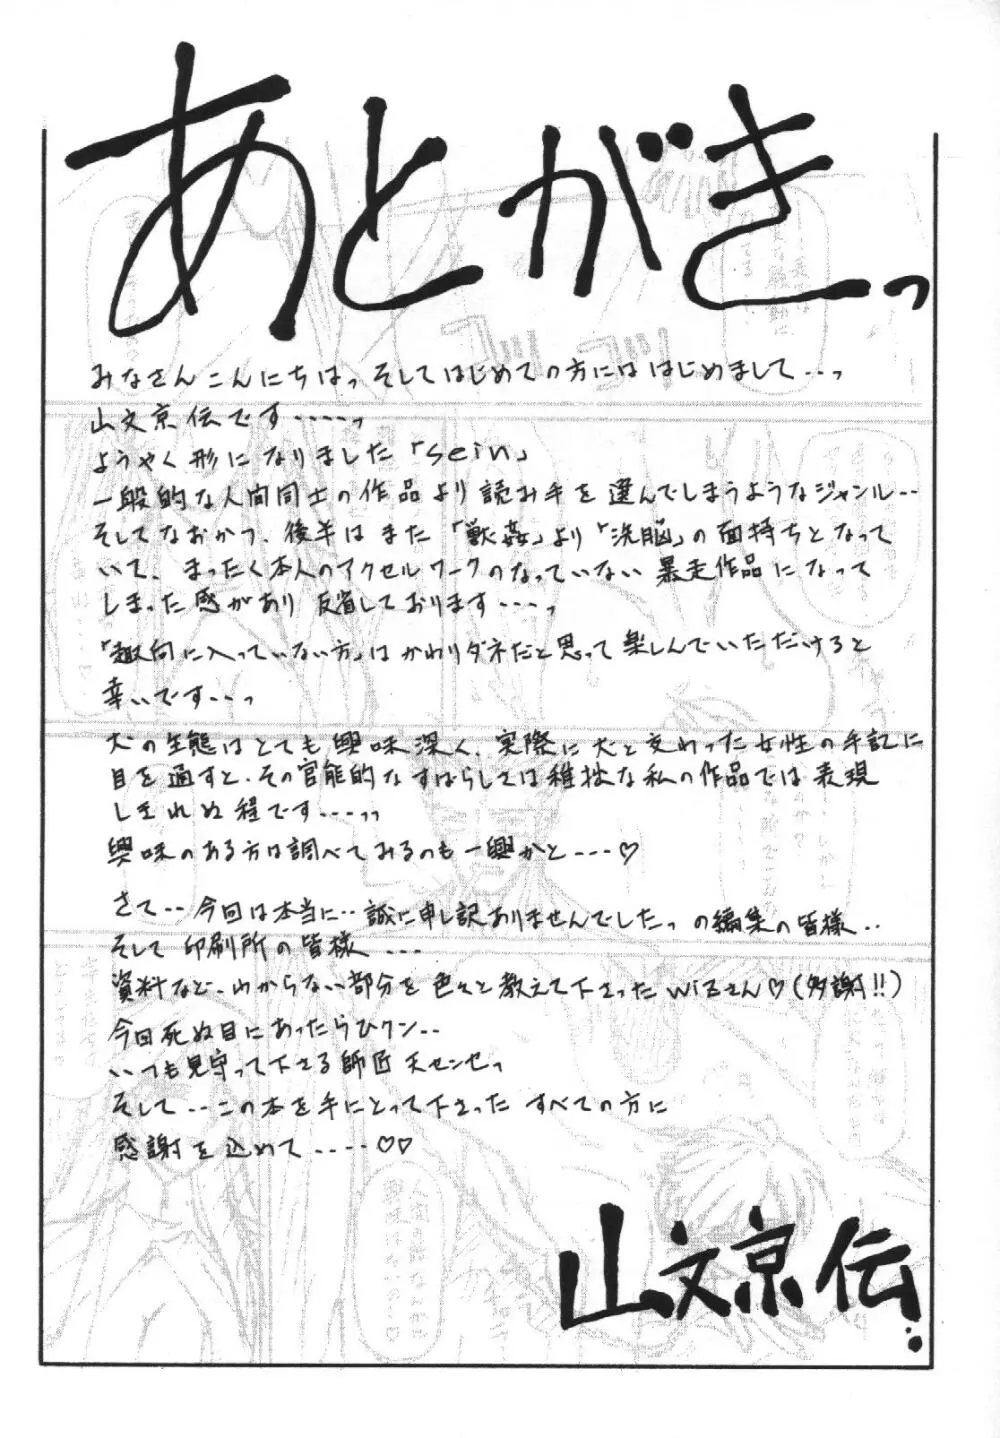 あとがきっ
みなさんこんにちはっ そしてはじめての方には はじめまして…っ
山文京伝です……っ
ようやく形になりました「sein」
一般的な人間同士の作品より読み手を選んでしまうようなジャンル‥
そしてなおかつ、後半はまた「獣姦」より「洗脳」の面持ちとなって
いて、まったく本人のアクセルワークのなっていない暴走作品になって
しまった感があり 反省しております…っ
「趣向に入っていない方」はかわりダネだと思って楽しんでいただけると
幸いです…っ
犬の生態はとても興味深く、実際に犬と交わった女性の手記に
目を通すと、その官能的なすばらしさは稚拙な私の作品では表現
しきれぬ程です…っっ
興味のある方は調べてみるのも一興かと…♡
さて‥今回は本当に‥誠に申し訳ありませんでしたっ の編集の皆様‥
そして印刷所の皆様…
資料など、わからない部分を色々と教えて下さったwizさん♡(多謝!!)
今回死ぬ目にあったらひクン‥
いつも見守って下さる師匠 天センセっ
そして‥この本を手にとって下さった すべての方に
感謝を込めて……♡♡
山文京伝